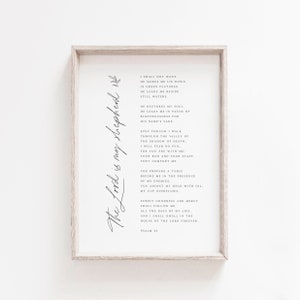 The Lord is my shepherd
I SHALL NOT WANT.
HE MAKES ME LIE DOWN
IN GREEN PASTURES.
HE LEADS ME BESIDE
STILL WATERS.
HE RESTORES MY SOUL.
HE LEADS ME IN PATHS OF
RIGHTEOUSNESS FOR
HIS NAME'S SAKE.
EVEN THOUGH I WALK
THROUGH THE VALLEY OF
THE SHADOW OF DEATH,
I WILL FEAR NO EVIL,
FOR YOU ARE WITH ME;
YOUR ROD AND YOUR STAFF
THEY COMFORT ME.
YOU PREPARE A TABLE
BEFORE ME IN THE PRESENCE
OF MY ENEMIES.
YOU ANOINT MY HEAD WITH OIL;
MY CUP OVERFLOWS.
SURELY GOODNESS AND MERCY
SHALL FOLLOW ME
ALL THE DAYS OF MY LIFE,
AND I SHALL DWELL IN THE
HOUSE OF THE LORD FOREVER.
PSALM 23